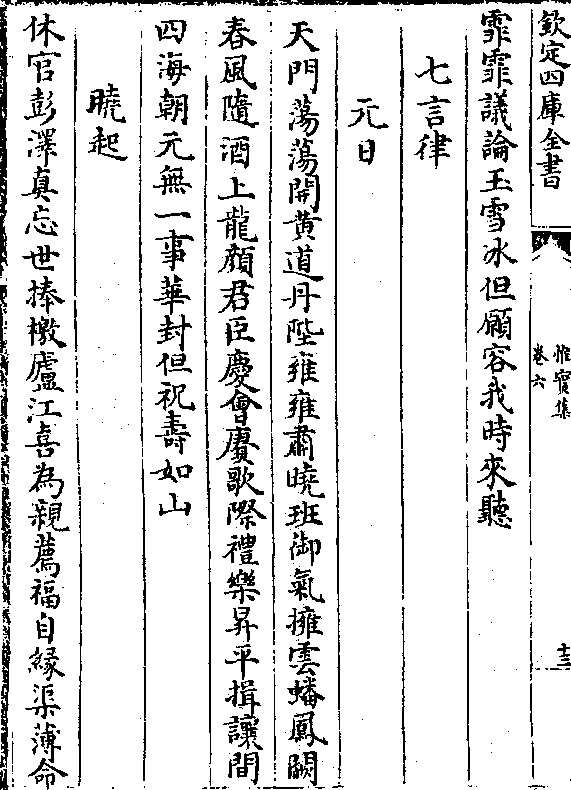 欽定四庫全書
惟實集
卷六
十三
霏霏議論玉雪冰但願容我時來聽
七言律
元日
天門蕩蕩開黄道丹陛雍雍肅曉班御氣擁雲蟠鳳闕
春風隨酒上龍顔君臣慶會賡歌際禮樂昇平揖讓間
四海朝元無一事華封但祝壽如山
曉起
休官彭澤真忘世捧檄廬江喜為親薦福自緣渠薄命